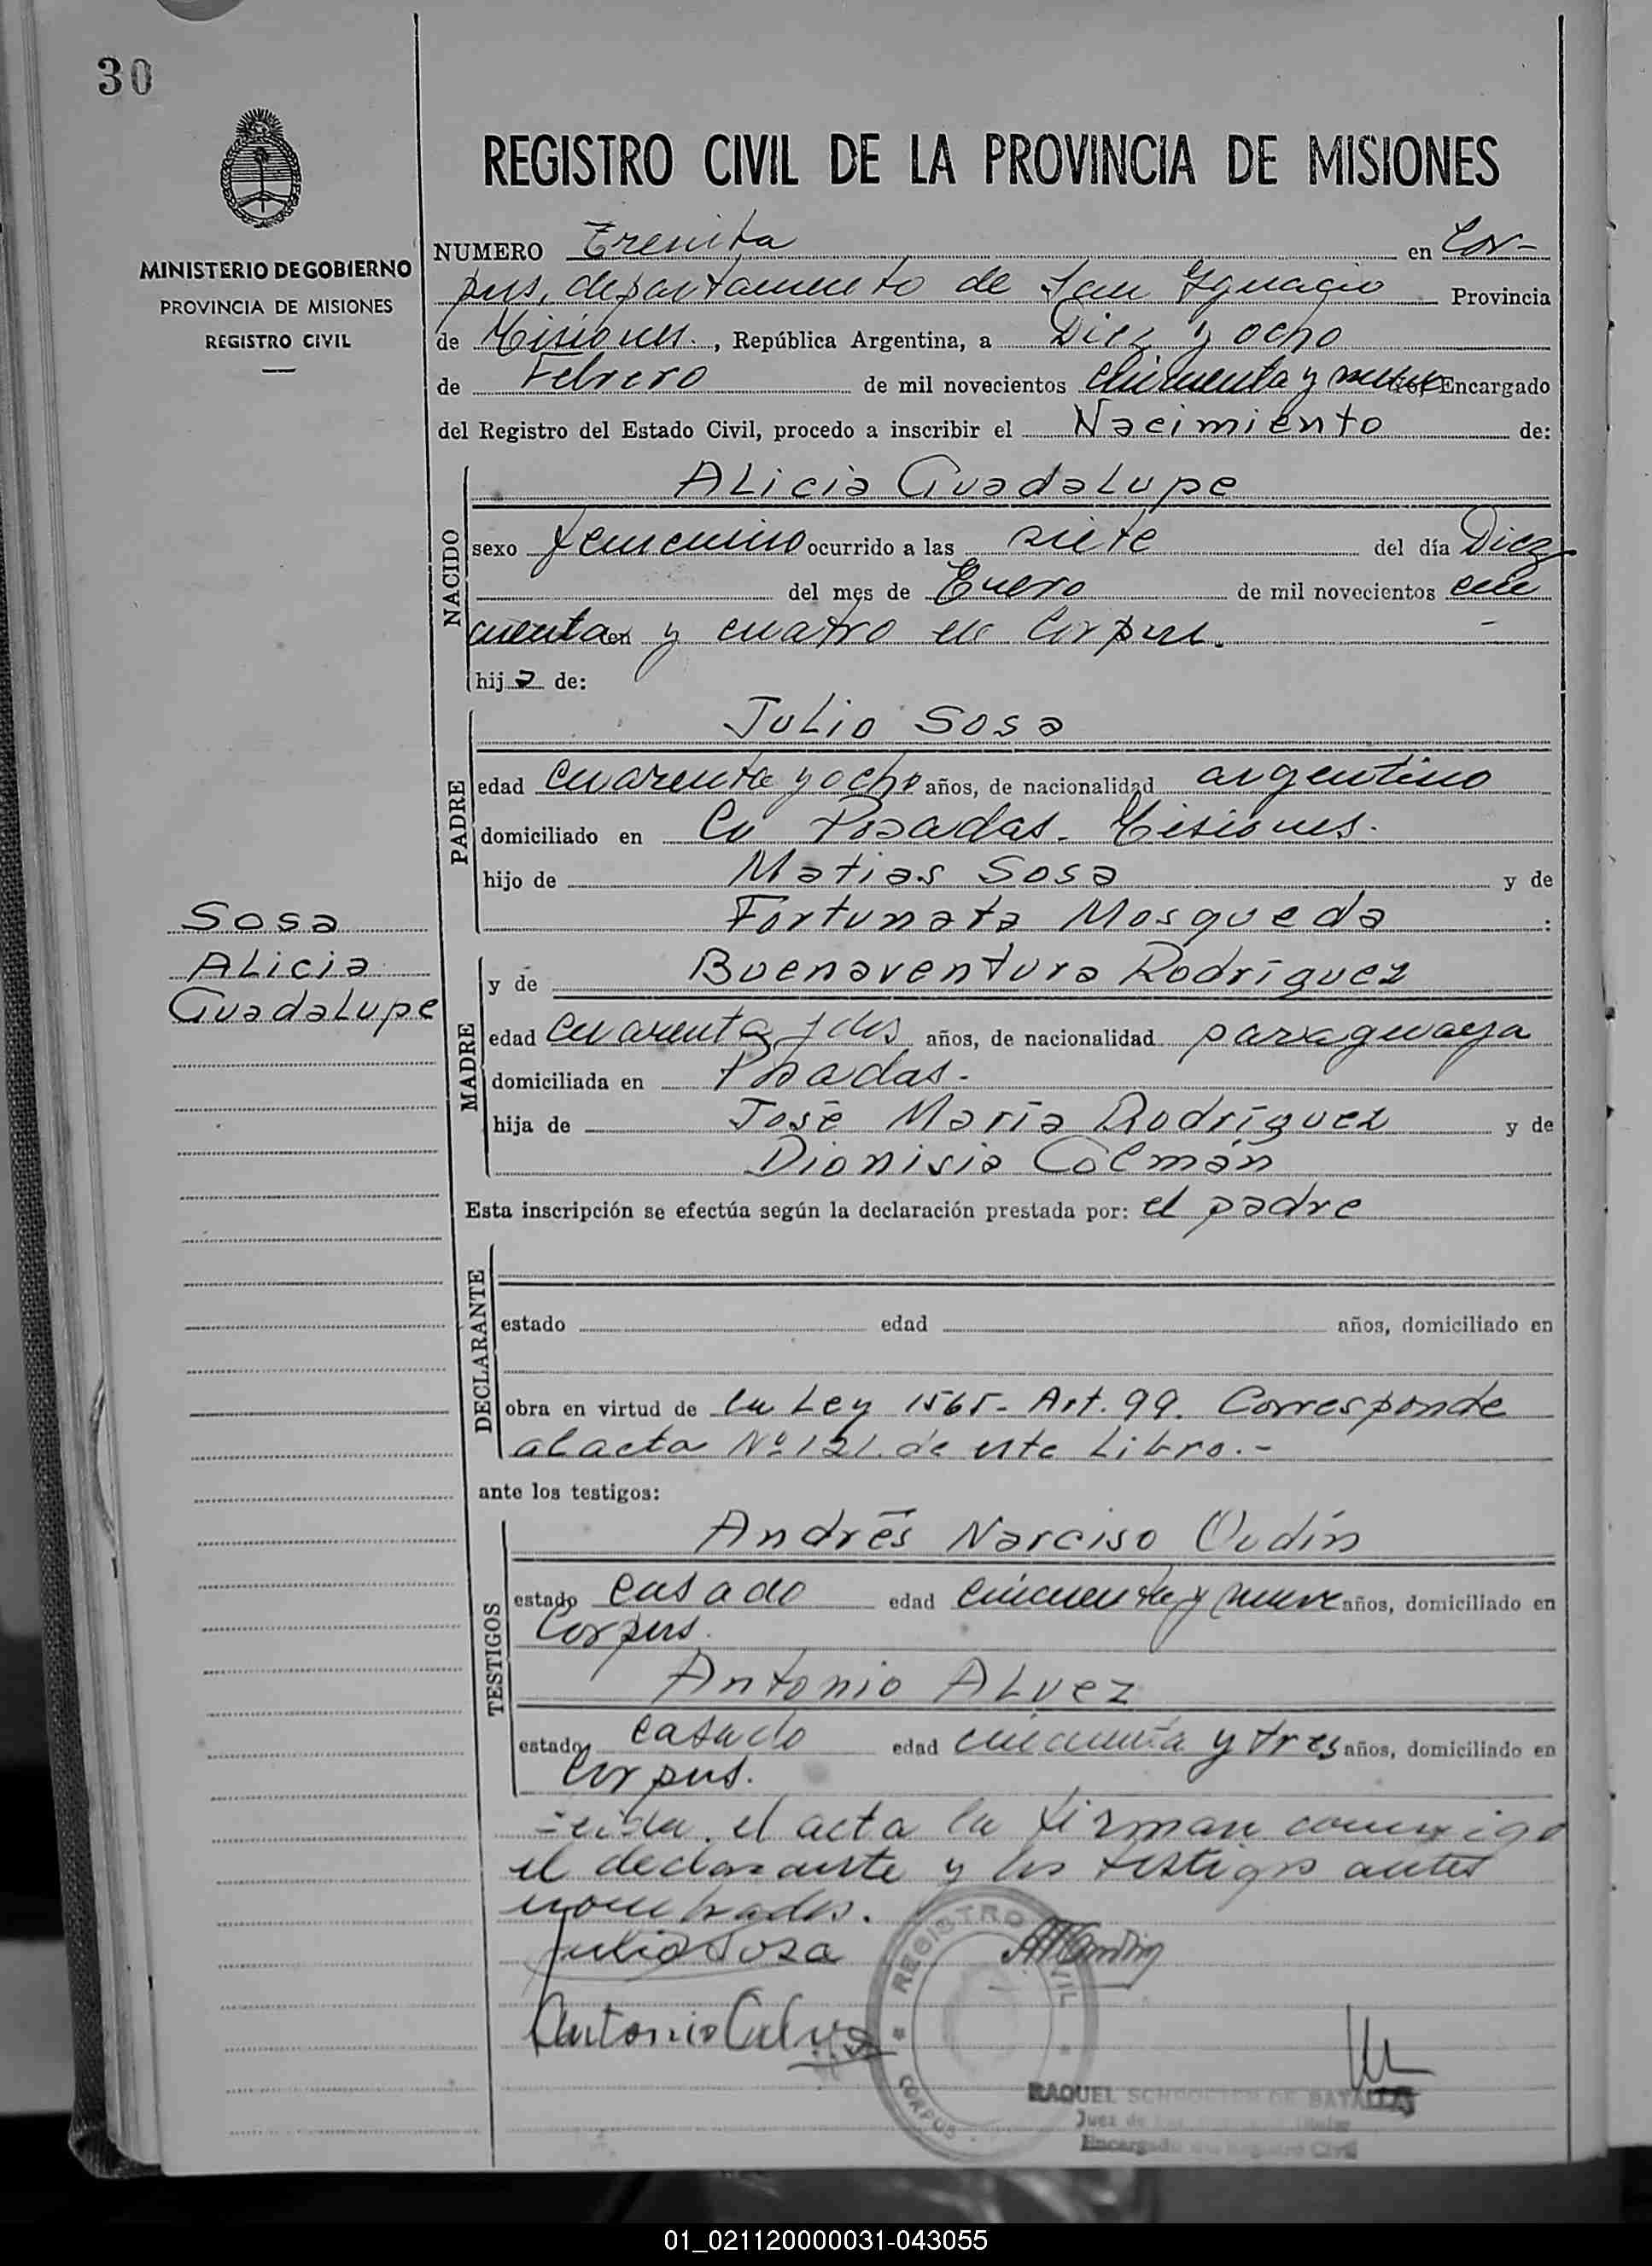 30
REGISTRO CIVIL DE LA PROVINCIA DE MISIONES
MINISTERIO DE GOBIERNO
PROVINCIA DE MISIONES
REGISTRO CIVIL
NUMERO Treinta en Cor-
pus, departamento de San Ygnacio Provincia
de Misiones. , República Argentina, a Diez y ocho
de Febrero de mil novecientos cincuenta y nueve Encargado
del Registro del Estado Civil, procedo a inscribir el Nacimiento de:
NACIDO
Alicia Guadalupe
sexo femenino ocurrido a las siete del día Diez
del mes de Enero de mil novecientos cin
cuenta en y cuatro en Corpus.
hij a de:
PADRE
Julio Sosa
edad cuarenta y ocho años, de nacionalidad argentino
domiciliado en En Posadas - Misiones.
hijo de Matias Sosa y de
Fortunata Mosqueda :
Sosa
Alicia
Guadalupe
MADRE
y de Buenaventura Rodríguez
edad cuarenta y dos años, de nacionalidad paraguaya
domiciliada en Posadas.
hija de José María Rodríguez y de
Dionisia Colmán
Esta inscripción se efectúa según la declaración prestada por: el padre
DECLARANTE
estado edad años, domiciliado en
obra en virtud de la Ley 1565- Art. 99. Corresponde
al acta Nº 121. de este Libro.-
ante los testigos:
TESTIGOS
Andrés Narciso Oudín
estado casado edad cincuenta y nueve años, domiciliado en
Corpus.
Antonio Alvez
estado casado edad cincuenta y tres años, domiciliado en
Corpus.
Leida, el acta la firman conmigo
el declarante y los testigos antes
nombrados.
Julio Sosa
Antonio Alvez
REGISTRO CIVIL
CORPUS
RAQUEL DE BATALLA
Juez de
Encargado Registro Civil
01_021120000031-043055